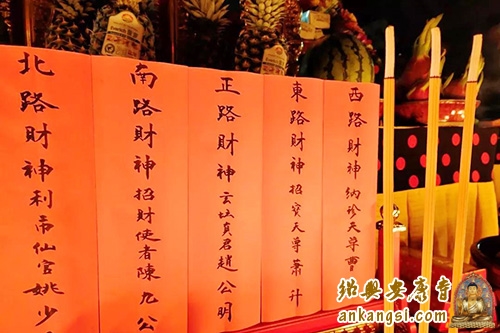 西路財神納珍天尊曹
東路財神招寶天尊蕭升
正路財神云坛真君趙公明
南路財神招財使者陳九公
北路財神利市仙官姚少
紹興安康寺
ankangsi.com